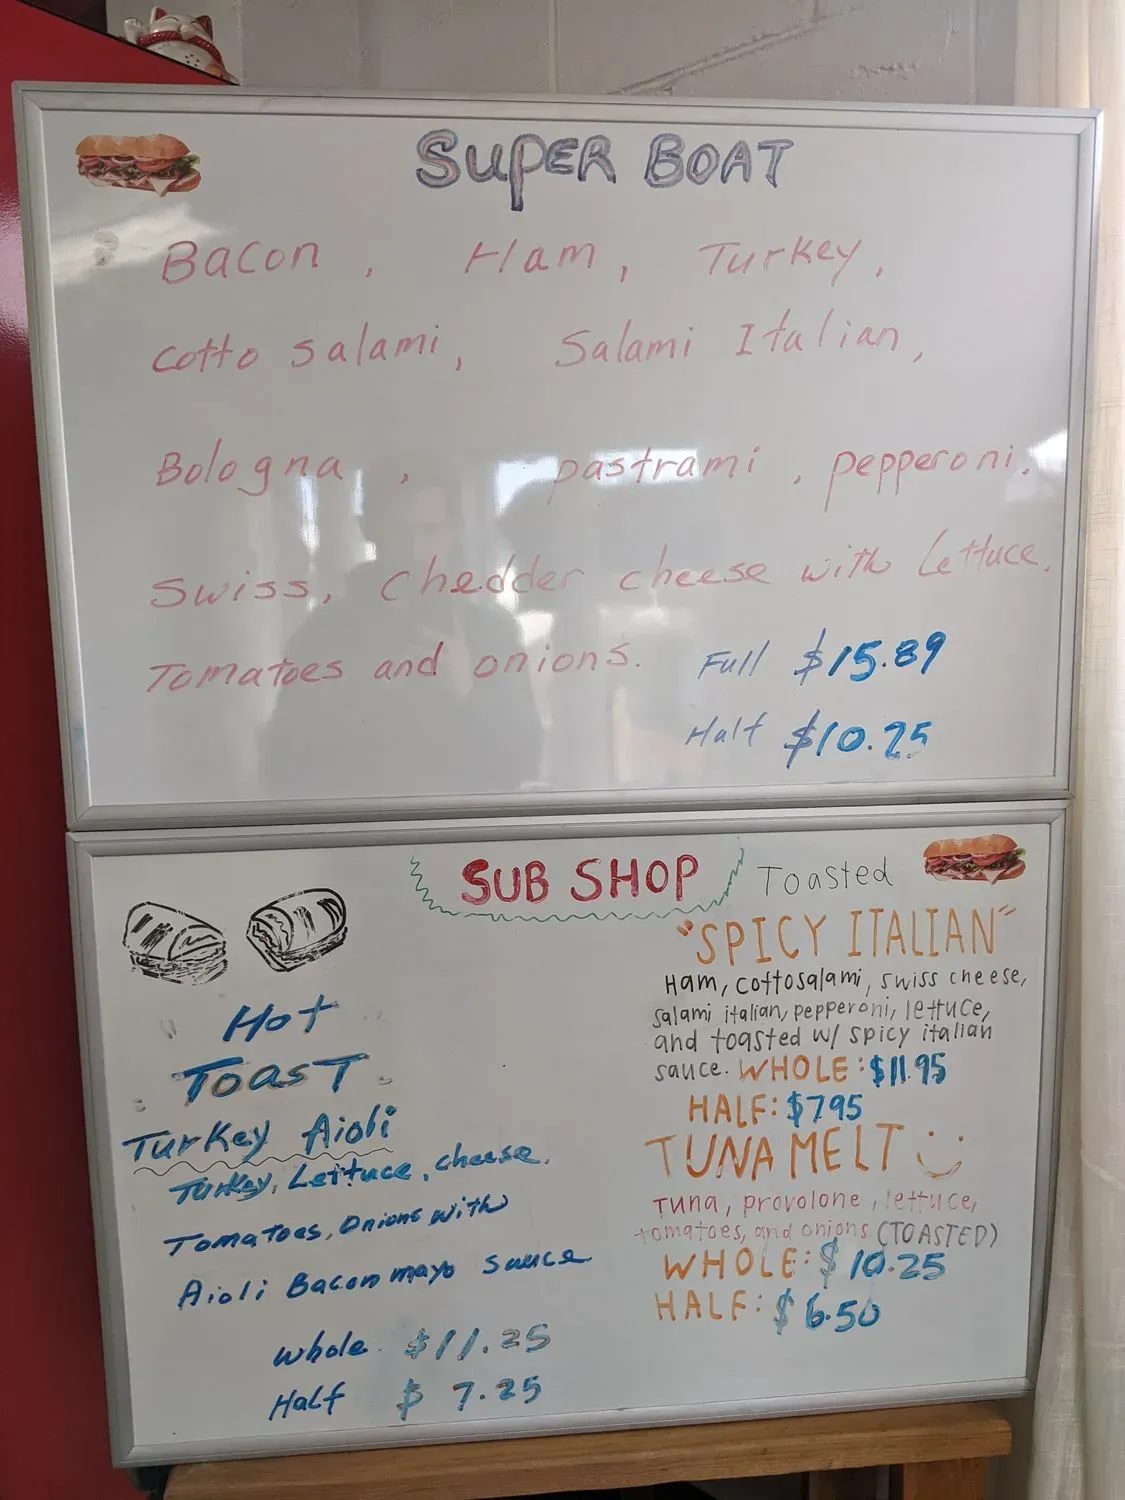 SUPER BOAT
Bacon, Ham, Turkey,
Cotto salami, Salami Italian,
Bologna, pastrami, pepperoni.
Swiss, chedder cheese with Lettuce.
Tomatoes and onions. Full $15.89
Half $10.25
SUB SHOP Toasted
Hot
Toast
Turkey Aioli
Turkey, Lettuce, cheese,
Tomatoes, Onions with
Aioli Bacon mayo sauce
whole $11.25
Half $7.25
"SPICY ITALIAN"
Ham, cottosalami, swiss cheese,
salami italian, pepperoni, lettuce,
and toasted w/ spicy italian
sauce. WHOLE: $11.95
HALF: $7.95
TUNA MELT
Tuna, provolone, lettuce,
tomatoes, and onions (TOASTED)
WHOLE: $10.25
HALF: $6.50